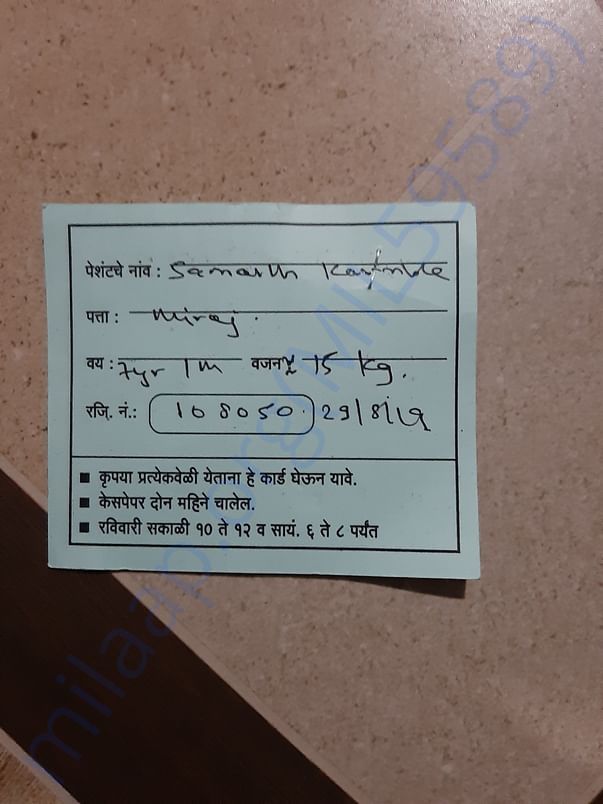 पेशंटचे नांव : Samarth Kamble
पत्ता : Miraj.
वय : 7yr 1M वजन 15 kg.
रजि. नं.: 108050 29/8/19
■ कृपया प्रत्येकवेळी येताना हे कार्ड घेऊन यावे.
■ केसपेपर दोन महिने चालेल.
■ रविवारी सकाळी १० ते १२ व सायं. ६ ते ८ पर्यंत
milaap.org(MIL59589)